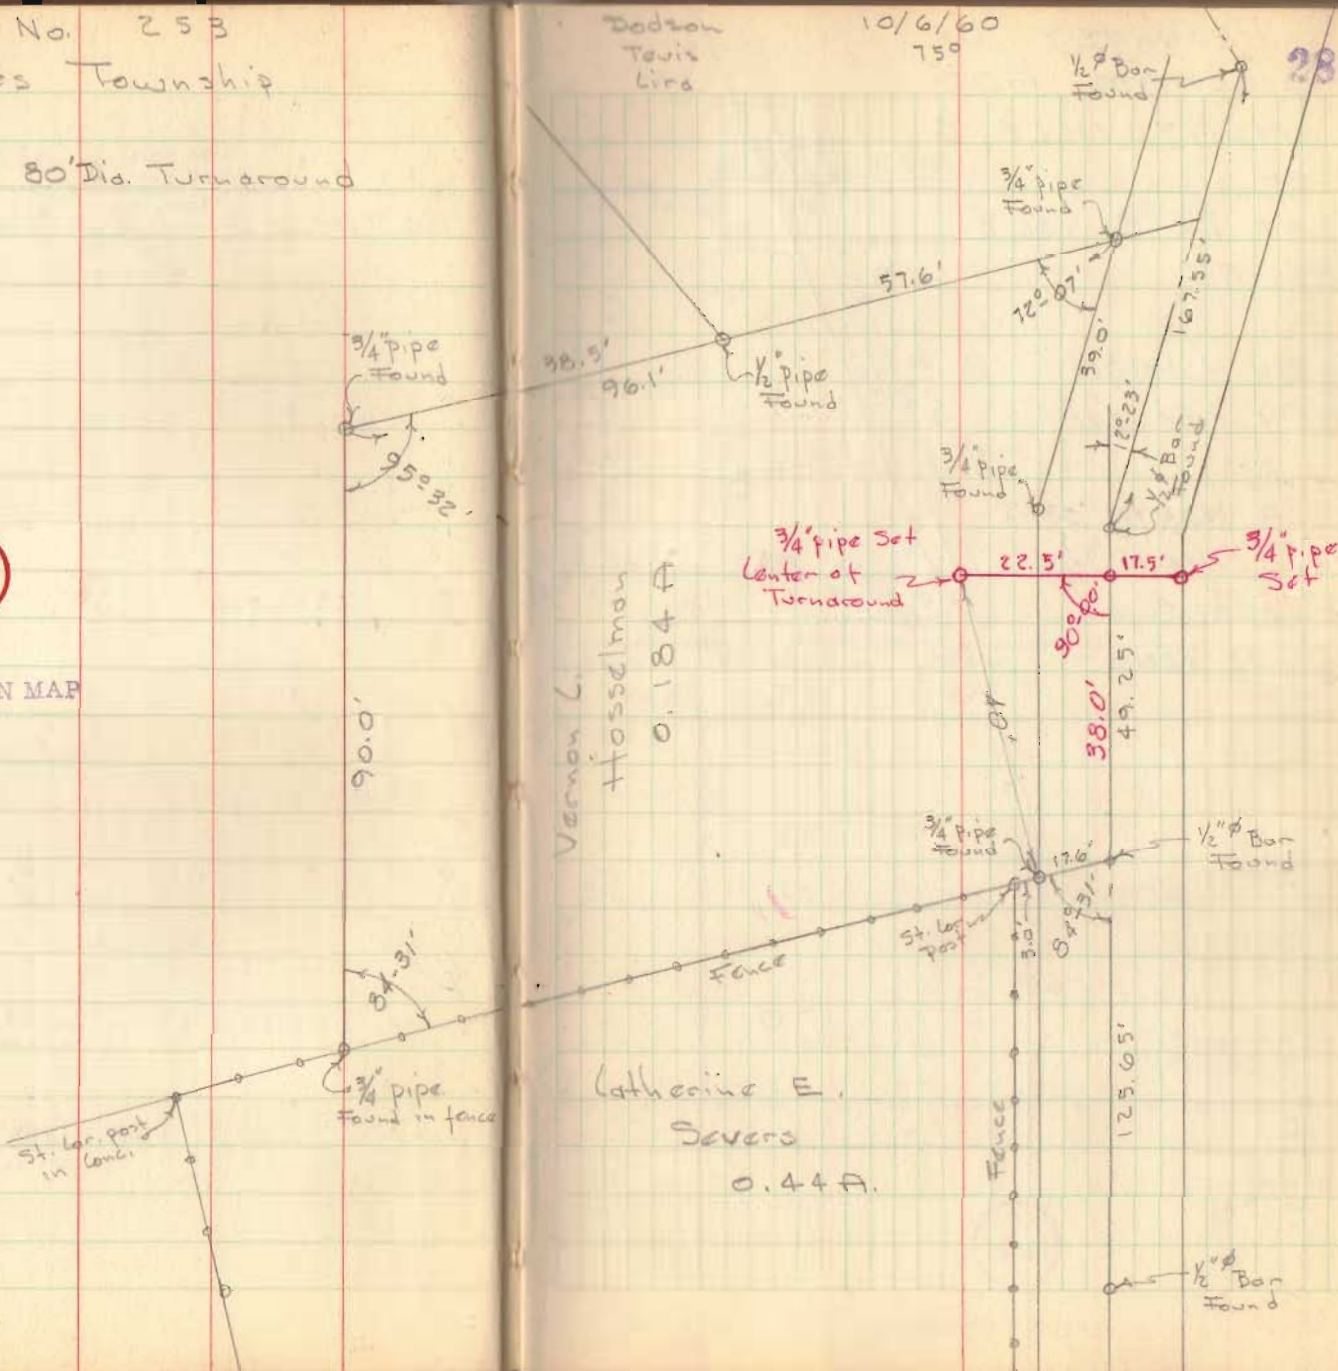 No. 253
es Township
80' Dia. Turnaround
3/4" pipe
Found
95°-32'
N MAP
90.0'
84°-31'
3/4" pipe
Found in fence
St. Cor. post
in Conc.
Dodson
Tevis
Lird
10/6/60
75°
28
1/2"ø Bar
Found
3/4" pipe
Found
57.6'
72°-07'
167.55'
39.0'
38.5'
96.1'
1/2" pipe
Found
12°-23'
1/2"ø Bar
Found
3/4" pipe
Found
3/4" pipe Set
Center of
Turnaround
22.5'
17.5'
3/4" pipe
Set
90°-00'
Vernon C.
Hosselman
0.184 A.
40'
38.0'
49.25'
3/4" pipe
Found
17.6'
1/2"ø Bar
Found
84°-31'
St. Cor.
post
3.0'
Fence
Catherine E.
Severs
0.44 A.
Fence
125.65'
1/2"ø Bar
Found